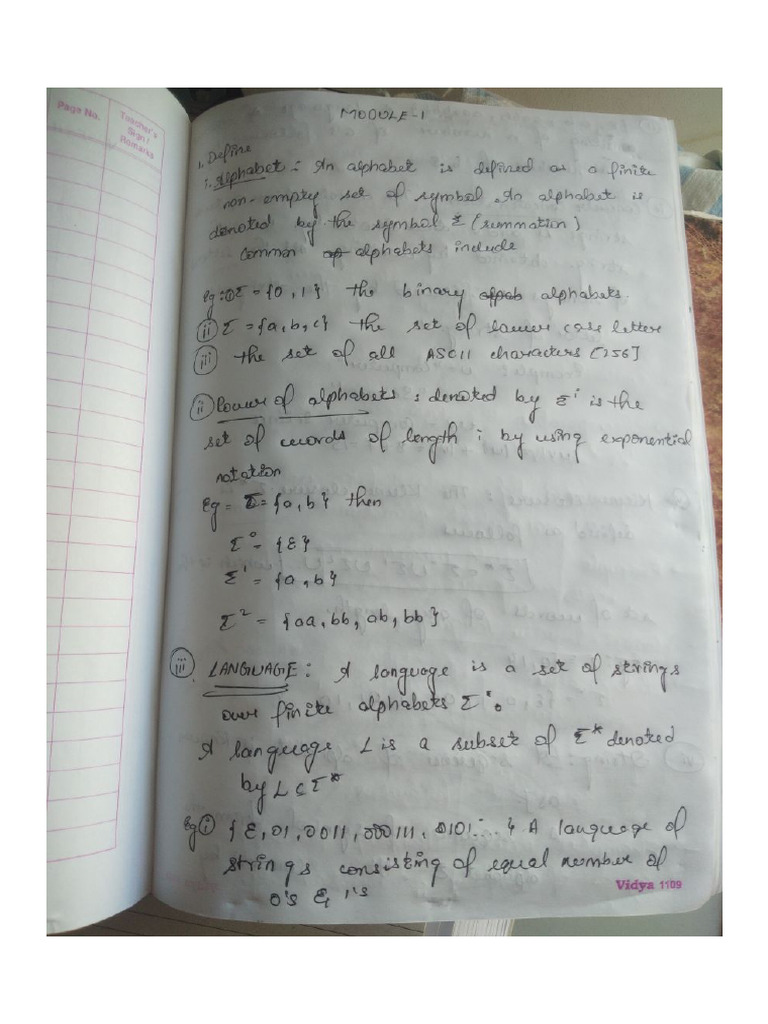 Page No.
Teacher's
Sign /
Remarks
MODULE-1
1. Define
i. Alphabet : An alphabet is defined as a finite
non-empty set of symbol. An alphabet is
denoted by the symbol Σ (summation)
Common alphabets include
Eg: ① Σ = {0, 1} the binary alphabets.
ii) Σ = {a, b, c} the set of lower case letter
iii) the set of all ASCII characters [256]
ii) Power of alphabets : denoted by Σⁱ is the
set of words of length i by using exponential
notation
Eg = Σ = {a, b} then
Σ⁰ = {ε}
Σ¹ = {a, b}
Σ² = {aa, bb, ab, bb}
iii) LANGUAGE : A language is a set of strings
over finite alphabets Σ
A language L is a subset of Σ* denoted
by L ⊆ Σ*
Eg i) {ε, 01, 0011, 000111, 0101 ... } A language of
strings consisting of equal number of
0's & 1's
Vidya 1109